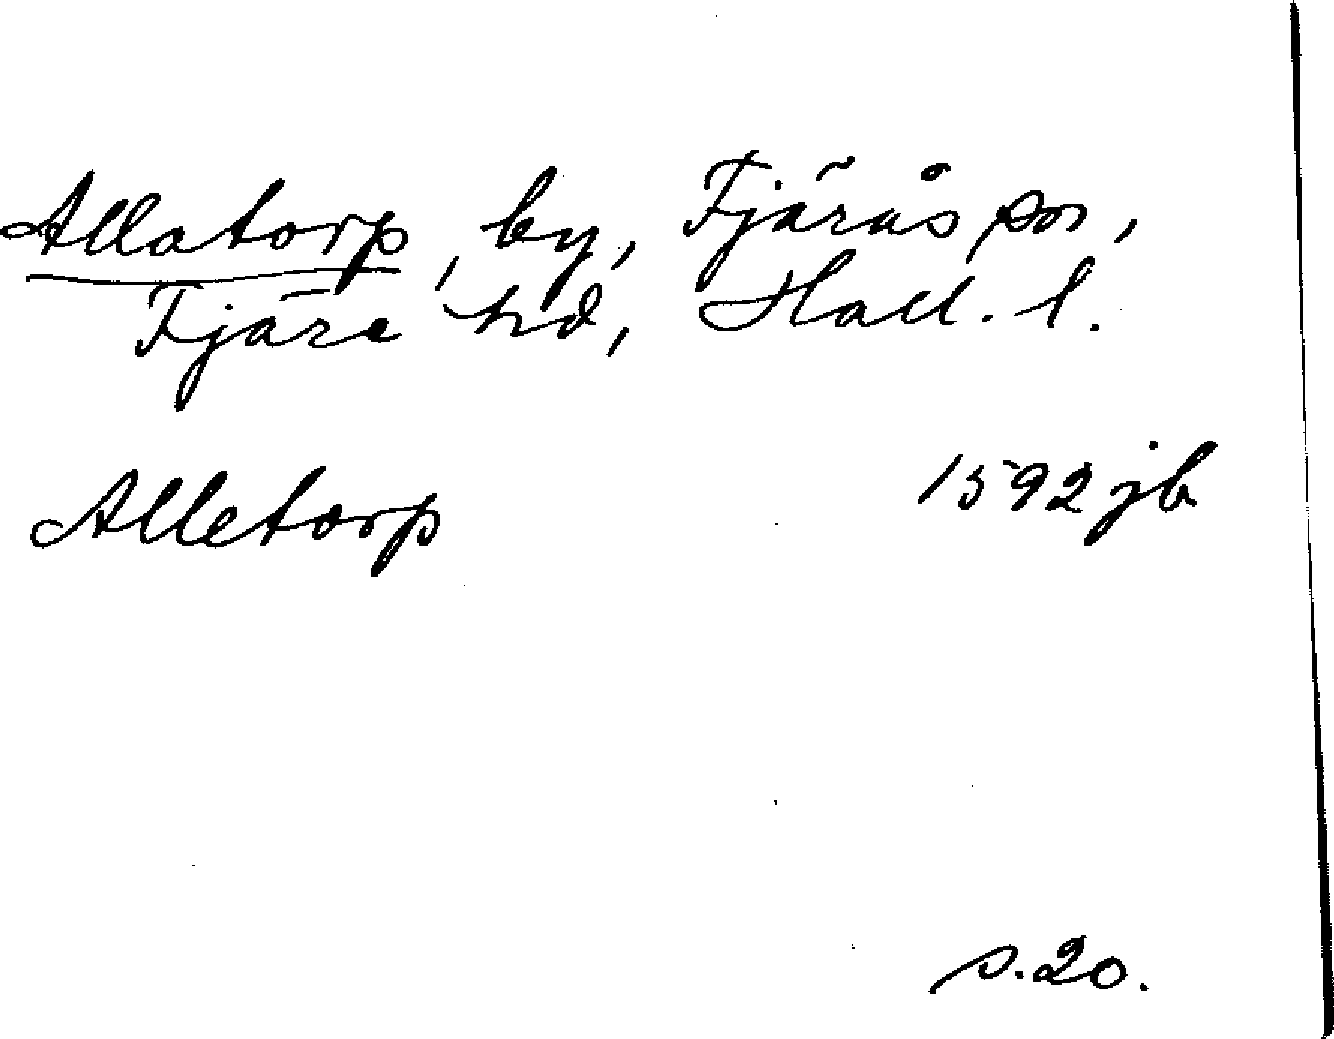 Allatorp, by, Fjärås sn,
Fjäre hd, Hall. l.
Alletorp 1592 jb
s. 20.